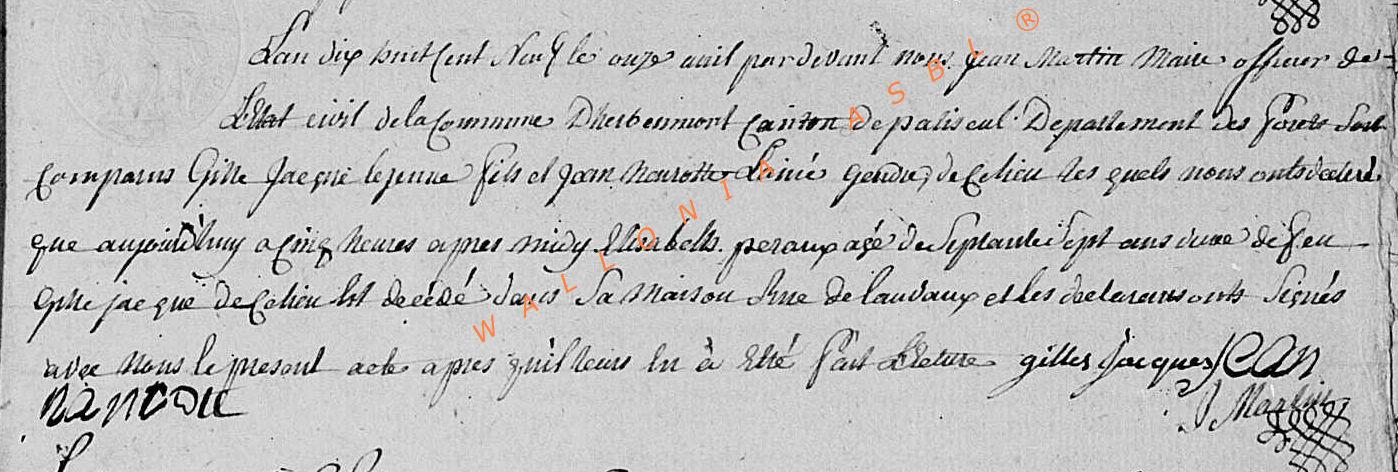 Lan dix huit Cent Neuf le onze avril pardevant nous Jean Martin Maire officier de
LEtat civil de la Commune Dherbeumont Canton de paliseul Departement des forets sont
Comparus Gille Jacque le jeune fils et Jean Lainé gendre de Celieu les quels nous onts declaré
que aujourdhuy a Cinq heures apres midy Elisabeth peraux agé de Septante Sept ans vuve de feu
Gille jacque de Celieu Est decédé dans Sa Maison Rue de Lauvaux et les declarans onts Signés
avec Nous le present acte apres quil leurs En à Etté fait Lecture gilles Jacques JEAN
J Martin
WALLONIA ASBL ®